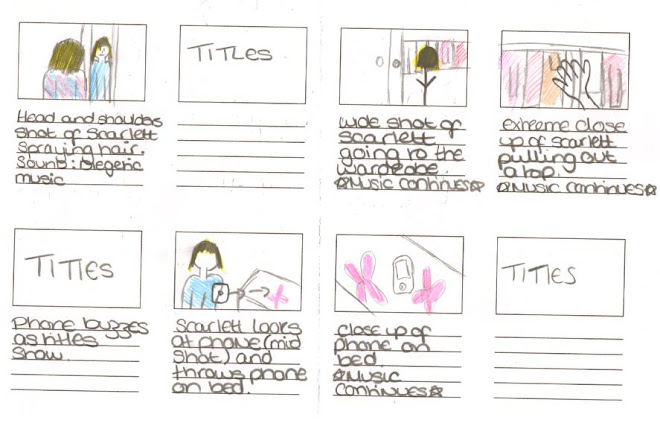 TITLES
Head and shoulders
shot of Scarlett
Spraying hair.
Sound: Diegetic
music
wide shot of
Scarlett
going to the
wardrobe.
☆Music continues☆
Extreme close
up of Scarlett
pulling out
a top.
☆Music continues☆
TITLES
Phone buzzes
as titles
show.
Scarlett looks
at phone (mid
shot) and
throws phone
on bed.
Close up of
phone on
bed.
☆Music
continues☆
TITLES